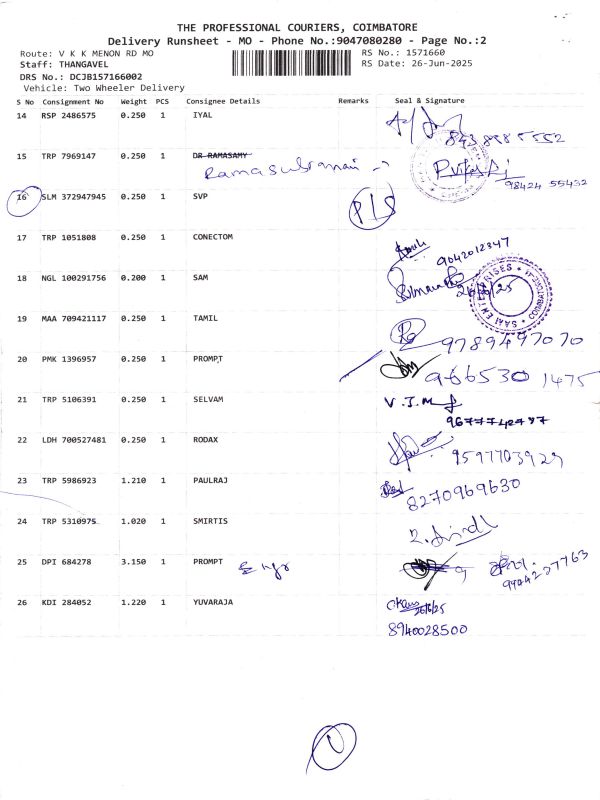 THE PROFESSIONAL COURIERS, COIMBATORE
Delivery Runsheet - MO - Phone No.:9047080280 - Page No.:2
Route: V K K MENON RD MO
RS No.: 1571660
Staff: THANGAVEL
RS Date: 26-Jun-2025
DRS No.: DCJB157166002
Vehicle: Two Wheeler Delivery
S No Consignment No Weight PCS Consignee Details Remarks Seal & Signature
14 RSP 2486575 0.250 1 IYAL
15 TRP 7969147 0.250 1 DR RAMASAMY
Ramasubramani
98424 55432
16 SLM 372947945 0.250 1 SVP
17 TRP 1051808 0.250 1 CONECTOM
9042012347
18 NGL 100291756 0.200 1 SAM
26/6/25
SAM ENTERPRISES
19 MAA 709421117 0.250 1 TAMIL
9789497070
20 PMK 1396957 0.250 1 PROMPT
966530 1475
21 TRP 5106391 0.250 1 SELVAM
V.I.M
22 LDH 700527481 0.250 1 RODAX
9597703929
23 TRP 5986923 1.210 1 PAULRAJ
8270969630
24 TRP 5310975 1.020 1 SMIRTIS
25 DPI 684278 3.150 1 PROMPT
9704227763
26 KDI 284052 1.220 1 YUVARAJA
26/6/25
8940028500